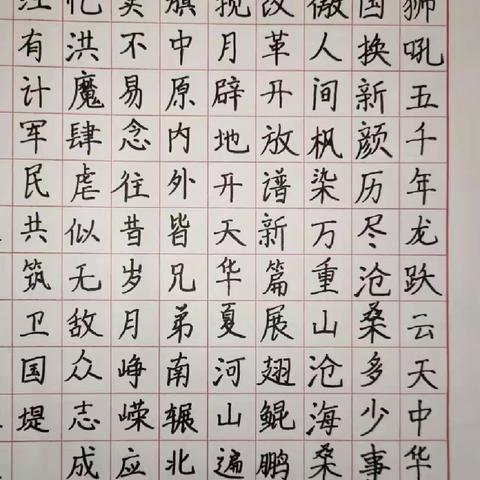 狮吼五千年龙跃云天中华
国换新颜历尽沧桑多少事
人间枫染万重山沧海桑
改革开放谱新篇展翅鲲鹏
揽月辟地开天华夏河山遍
旗中原内外皆兄弟南辗北
不易念往昔岁月峥嵘应
忆洪魔肆虐似无敌众志成
江有计军民共筑卫国堤